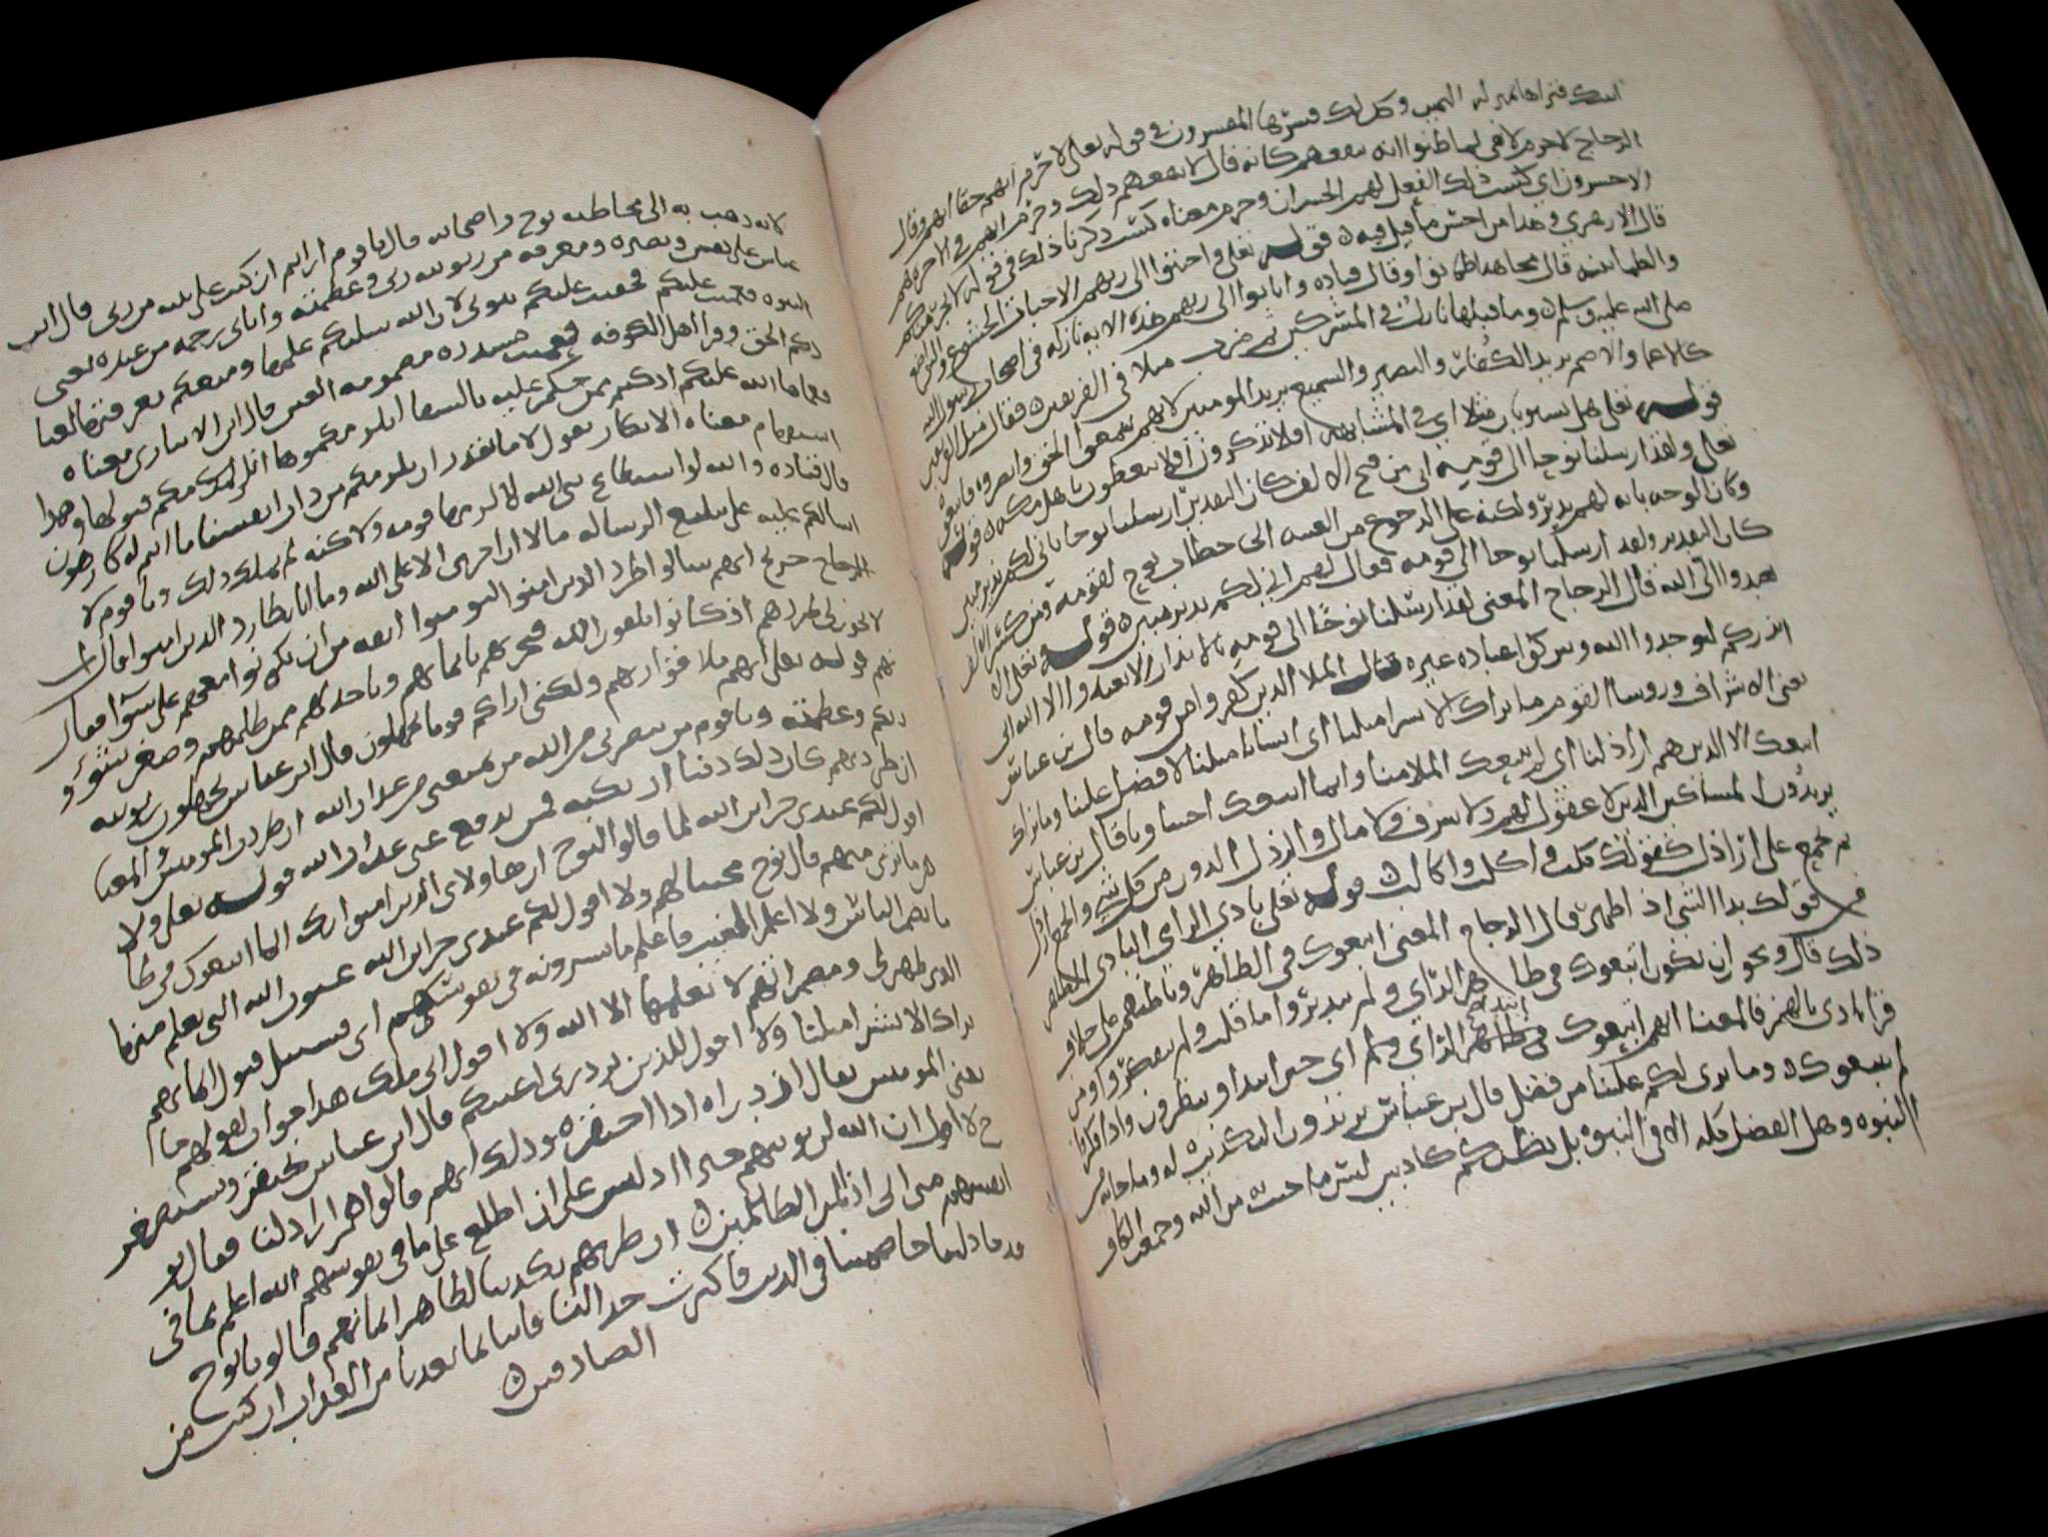 فتراها بمنزلة اليمين وكذلك فسرها المفسرون في قوله تعالى لا جرم انهم حقا انهم وقال
الزجاج لا جرم لا نفي لما ظنوا انه ينفعهم كانه قال لا ينفعهم ذلك وجرم انهم في الاخرة هم
الاخسرون اي كسب ذلك الفعل لهم الخسران وجرم معناه كسب ذكرنا ذلك في قوله لا يجرمنكم
قال الازهري وهذا من احسن ما قيل فيه قوله تعلى واخبتوا الى ربهم الاخبات الخشوع والتواضع
والطمانينة قال مجاهد اطمانوا وقال قتاده وانابوا الى ربهم هذه الاية نازلة في اصحاب رسول الله
صلى الله عليه وسلم وما قبلها نازلت في المشركين ثم ضرب مثلا في الفريقين فقال مثل الفريقين
كالاعما والاصم يريد الكفار والبصير والسميع يريد المومنين لانهم سمعوا الحق وابصروه فاتبعوه
قوله تعلى هل يستويان مثلا اي في المشابهة افلا تذكرون افلا تتعظون قوله
تعلى ولقد ارسلنا نوحا الى قومه اني من فتح الالف كان التقدير ارسلنا نوحا باني لكم نذير مبين
وكان الوجه بانه لهم نذير ولكنه على الرجوع من الغيبة الى خطاب نوح لقومه ومن كسر الالف
كان التقدير ولقد ارسلنا نوحا الى قومه فقال لهم اني لكم نذير مبين قوله تعلى ان لا
تعبدوا الا الله قال الزجاج المعنى لقد ارسلنا نوحا الى قومه بالانذار الا تعبدوا الا الله اني
انذركم لتوحدوا الله وتتركوا عبادة غيره فقال الملا الذين كفروا من قومه قال بن عباس
يعني الاشراف وروسا القوم ما نراك الا بشرا مثلنا اي انسانا مثلنا لا فضل علينا وما نراك
اتبعك الا الذين هم اراذلنا اي لم يتبعك الملا منا وانما اتبعك اخسا ونا قال بن عباس
يريدون المساكين الذين لا عقول لهم ولا شرف ولا مال والرذل الدون من كل شي والجمع ارذل
ثم يجمع على اراذل كقولك كلب واكلب واكالب قوله تعلى بادي الراي البادي الظاهر
من قولك بدا الشي اذا ظهر قال الزجاج المعنى اتبعوك في الظاهر وباطنهم على خلاف
ذلك قال ويجوز ان يكون اتبعوك في ظاهر الراي ولم يتدبروا ما قلت ولم يفكروا ومن
قرا بادئ بالهمز فالمعنا انهم اتبعوك في ابتدا الراي اي حين ابتداو ينظرون واذا فكروا
لم يتبعوك وما نرى لكم علينا من فضل قال بن عباس يريدون التكذيب له وما جا به من
النبوه وهل الفضل كله الا في النبوة بل نظنكم كاذبين ليس ما جيت من الله وجمعت الكاف
لانه ذهب به الى مخاطبة نوح واصحابه قال يا قوم ارايتم ان كنت على بينة من ربي قال ابن
عباس على يقين وبصيره ومعرفه من ربوبية ربي وعظمته واتاني رحمه من عنده يعني
النبوه فعميت عليكم فخفيت عليكم نبوتي لان الله سلبكم علمها ومنعكم معرفتها لعنا
دكم الحق وقرا اهل الكوفه فعميت مشدده مضمومه العين قال ابن الانباري معناه
فعماها الله عليكم اذ كنتم ممن حكم عليه بالشقا انلزمكموها انلزمكم قبولها وهذا
استفهام معناه الانكار يقول لا نقدر ان نلزمكم من ذات انفسنا ما انتم له كارهون
قال قتاده والله لو استطاع نبي الله لالزمها قومه ولاكنه لم يملك ذلك ويا قوم لا
اسالكم عليه على تبليغ الرساله مالا ان اجري الا على الله وما انا بطارد الذين امنوا قال ابن
جريج انهم سالوا طرد الذين امنوا ليومنوا انفة من ان يكونوا معهم على سوا فقال
لا يجوز لي طردهم اذ كانوا يلقون الله فيجزيهم بايمانهم وياخذ لهم ممن ظلمهم وصغر شئونهم
قوله تعلى انهم ملاقوا ربهم ولكني اراكم قوما تجهلون قال ابن عباس تجهلون ربوبية
ربكم وعظمته ويا قوم من ينصرني من الله من يمنعني من عذاب الله ان طردت المومنين والمعنا
ان طردهم كان ذلك ذنبا ان ارتكبه فمن يدفع عني عذاب الله قوله تعلى ولا
اقول لكم عندي خزاين الله لما قالوا لنوح ان هاولاي الذين امنوا بك انما اتبعوك في ظا
هر ما نرى منهم قال نوح مجيبا لهم ولا اقول لكم عندي خزاين الله غيوب الله التي يعلم منها
ما يضمر الناس ولا اعلم الغيب فاعلم ما يسرونه في نفوسهم اي فسبيلي قبول ايمانهم
الذي ظهر لي ومضمراتهم لا يعلمها الا الله ولا اقول اني ملك هذا جواب لقولهم ما
نراك الا بشرا مثلنا ولا اقول للذين تزدري اعينكم قال ابن عباس تحتقر وتستصغر
يعني المومنين يقال ازدراه اذا احتقره وذلك انهم قالوا هم اراذلنا فقال نو
ح لا اقول ان الله لن يوتيهم خيرا اذ ليس علي ان اطلع على ما في نفوسهم الله اعلم بما في
انفسهم اني اذا لمن الظالمين ان طردتهم تكذيبا لظاهر ايمانهم قالوا يا نوح
قد جادلتنا خاصمتنا في الدين فاكثرت جدالنا فاتنا بما تعدنا من العذاب ان كنت من
الصادقين